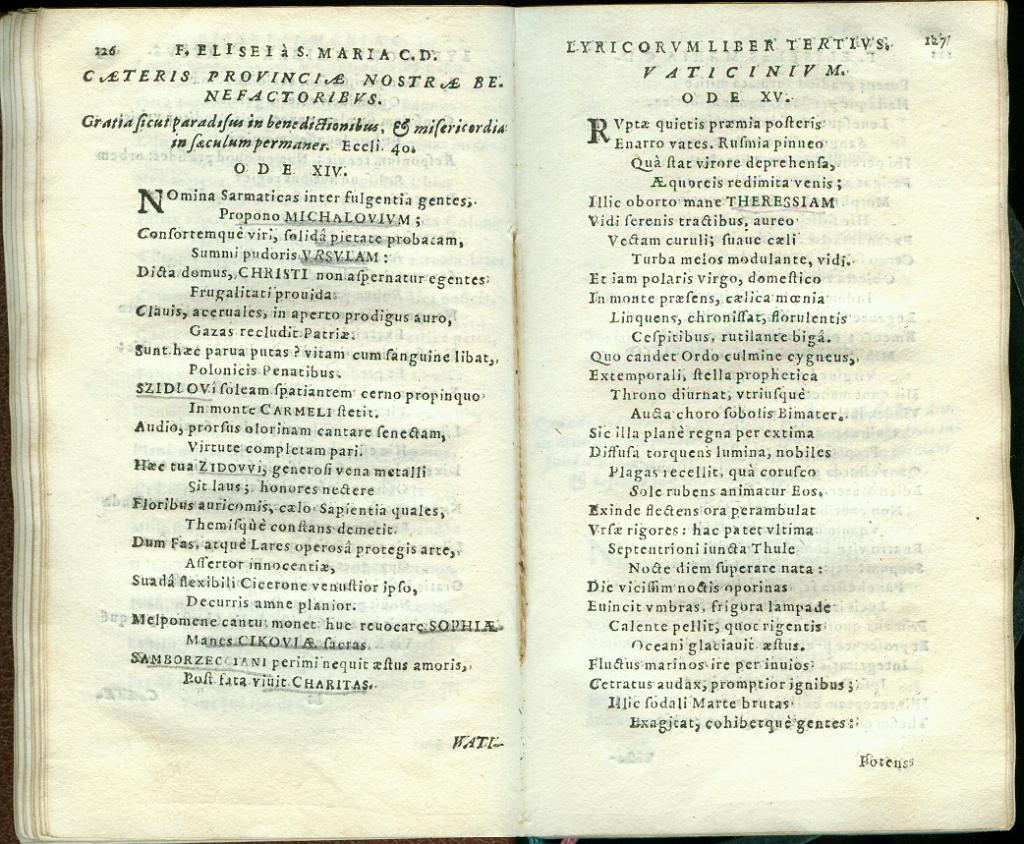 126 F. ELISEI à S. MARIA C.D.
CÆTERIS PROVINCIÆ NOSTRÆ BE-
NEFACTORIBVS.
Gratia sicut paradisus in benedictionibus, & misericordia
in sæculum permanet. Eccli. 40.
ODE XIV.
NOmina Sarmaticas inter fulgentia gentes,
Propono MICHALOVIVM;
Consortemquè viri, solidâ pietate probatam,
Summi pudoris VRSVLAM:
Dicta domus, CHRISTI non aspernatur egentes
Frugalitati prouida:
Clauis, aceruales, in aperto prodigus auro,
Gazas recludit Patriæ.
Sunt hæc parua putas? vitam cum sanguine libat,
Polonicis Penatibus.
SZIDLOVI soleam spatiantem cerno propinquo
In monte CARMELI stetit.
Audio, prorsus olorinam cantare senectam,
Virtute completam pari.
Hæc tua ZIDOVVI, generosi vena metalli
Sit laus; honores nectere
Floribus auricomis, cælo Sapientia quales,
Themisquè constans demetit.
Dum Fas, atquè Lares operosâ protegis arte,
Assertor innocentiæ,
Suadâ flexibili Cicerone venustior ipso,
Decurris amne planior.
Melpomene cantu monet huc reuocare SOPHIÆ
Manes CIKOVIÆ sacras.
SAMBORZECCIANI perimi nequit æstus amoris,
Post fata viuit CHARITAS.
VATI-
LYRICORVM LIBER TERTIVS. 127
VATICINIVM.
ODE XV.
RVptæ quietis præmia posteris
Enarro vates. Rusmia pinueo
Quà stat virore deprehensa,
Æquoreis redimita venis;
Illic oborto mane THERESSIAM
Vidi serenis tractibus, aureo
Vectam curuli; suaue cæli
Turba melos modulante, vidi.
Et iam polaris virgo, domestico
In monte præsens, cælica mœnia
Linquens, chronissat, florulentis
Cespitibus, rutilante bigâ.
Quo candet Ordo culmine cygneus,
Extemporali, stella prophetica
Throno diurnat, vtriusquè
Aucta choro sobolis Bimater.
Sic illa planè regna per extima
Diffusa torquens lumina, nobiles
Plagas recellit, quà corusco
Sole rubens animatur Eos.
Exinde flectens ora perambulat
Vrsæ rigores: hac patet vltima
Septentrioni iuncta Thule
Nocte diem superare nata:
Die vicissim noctis oporinas
Euincit vmbras, frigora lampade
Calente pellit, quot rigentis
Oceani glaciauit æstus.
Fluctus marinos ire per inuios
Cetratus audax, promptior ignibus;
Illic sodali Marte brutas
Exagitat, cohibetquè gentes:
Potens